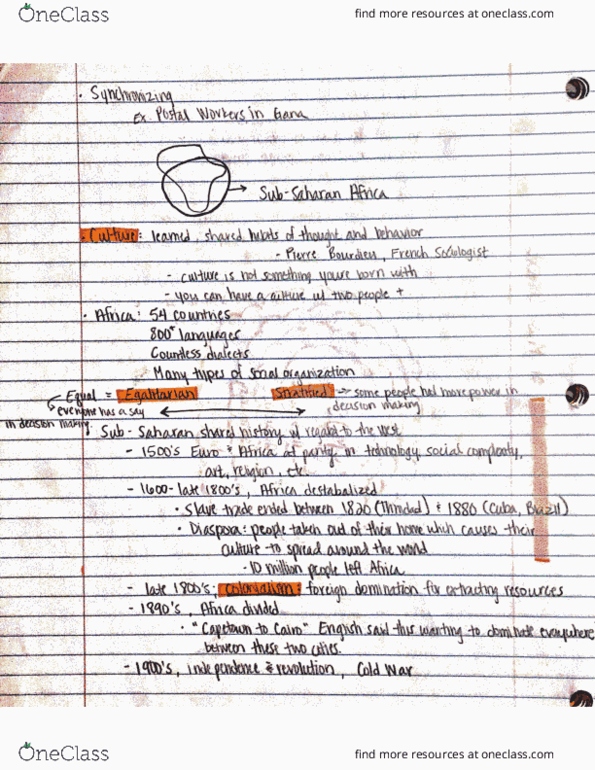 OneClass
find more resources at oneclass.com
· Synchronizing
Ex Postal Workers in Gana
→ Sub-Saharan Africa
· Culture: learned, shared habits of thought and behavior
- Pierre Bourdieu, French Sociologist
- culture is not something youre born with
- you can have a culture w/ two people +
· Africa: 54 countries
800+ languages
Countless dialects
Many types of social organization
Equal = Egalitarian
Stratified → some people had more power in
everyone has a say
decision making
in decision making
· Sub-Saharan shared history w/ regard to the West
- 1500's Euro & Africa at parity in technology, social complexity,
art, religion, etc.
- 1600-late 1800's, Africa destabalized
· Slave trade ended between 1820 (Trinidad) & 1880 (Cuba, Brazil)
· Diaspora: people taken out of their home which causes their
culture to spread around the world
- 10 million people left Africa
- late 1800's: colonialism: foreign domination for extracting resources
- 1890's, Africa divided
· "Capetown to Cairo" English said this wanting to dominate everywhere
between these two cities.
- 1900's, independence & revolution, Cold War
OneClass
find more resources at oneclass.com